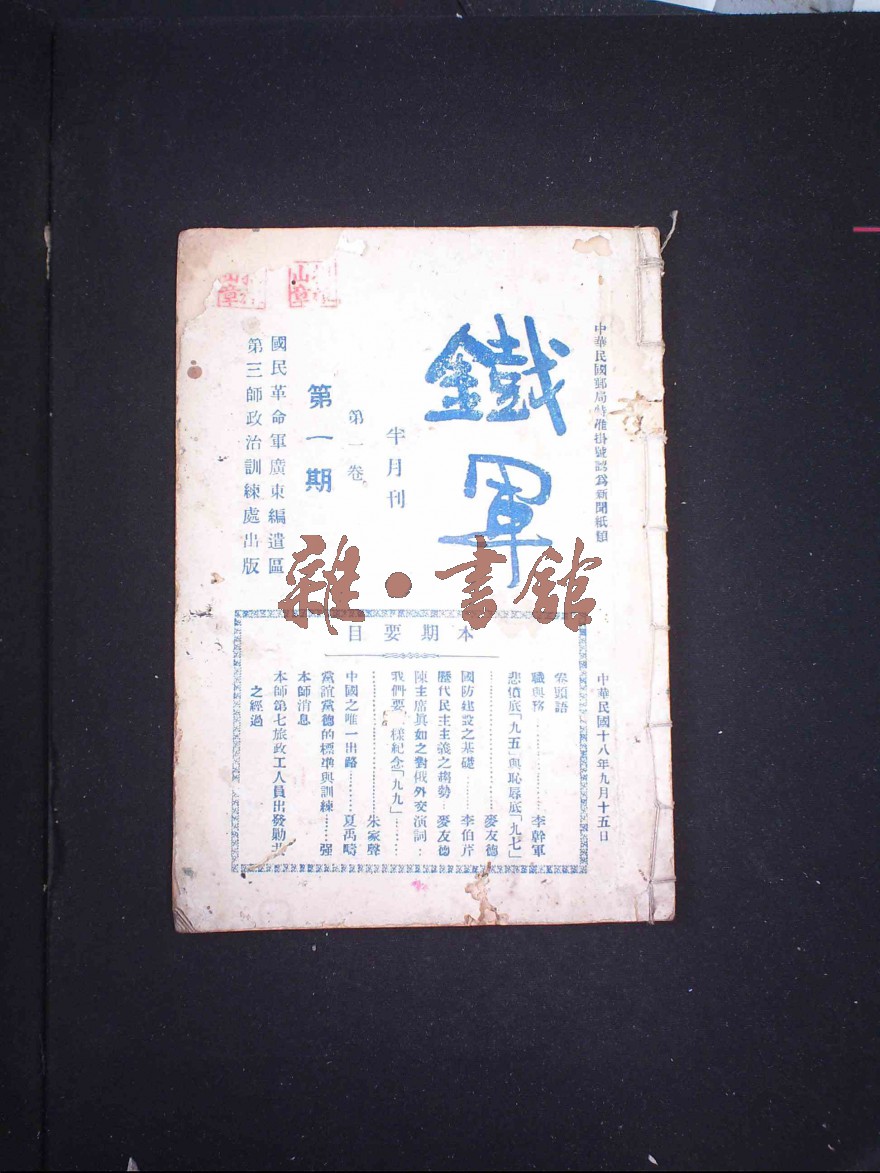 中華民國郵局特准掛號認為新聞紙類
中華民國十八年九月十五日
鐵軍
半月刊
第一卷
第一期
國民革命軍廣東編遣區
第三師政治訓練處出版
雜·書館
本期要目
卷頭語
職與務………………李幹軍
悲憤底「九五」與恥辱底「九七」
………………麥友德
國防建設之基礎………李伯芹
歷代民主主義之趨勢…麥友德
陳主席真如之對俄外交演詞…
我們要 樣紀念「九九」………
………………朱家聲
中國之唯一出路………夏禹疇
黨誼黨德的標準與訓練……强
本師消息
本師第七旅政工人員出發勦共
之經過